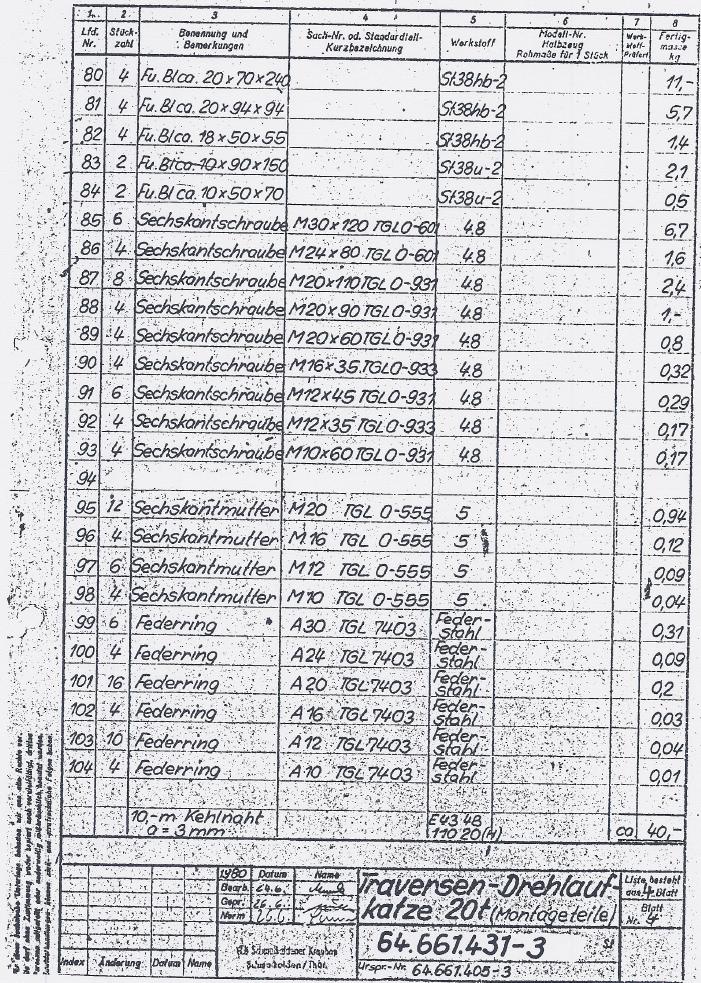 1. 2 3 4 5 6 7 8
Lfd. Nr. Stück- zahl Benennung und Bemerkungen Sach-Nr. od. Standardteil- Kurzbezeichnung Werkstoff Modell-Nr. Halbzeug Rohmaße für 1 Stück Fertig- masse kg
80 4 Fu. Bl ca. 20 x 70 x 240 St38hb-2 11,-
81 4 Fu. Bl ca. 20 x 94 x 94 St38hb-2 5,7
82 4 Fu. Bl ca. 18 x 50 x 55 St38hb-2 1,4
83 2 Fu. Bl ca. 10 x 90 x 150 St38u-2 2,1
84 2 Fu. Bl ca. 10 x 50 x 70 St38u-2 0,5
85 6 Sechskantschraube M30 x 120 TGL 0-601 4.8 6,7
86 4 Sechskantschraube M24 x 80 TGL 0-601 4.8 1,6
87 8 Sechskantschraube M20 x 110 TGL 0-931 4.8 2,4
88 4 Sechskantschraube M20 x 90 TGL 0-931 4.8 1,-
89 4 Sechskantschraube M20 x 60 TGL 0-931 4.8 0,8
90 4 Sechskantschraube M16 x 35 TGL 0-933 4.8 0,32
91 6 Sechskantschraube M12 x 45 TGL 0-931 4.8 0,29
92 4 Sechskantschraube M12 x 35 TGL 0-933 4.8 0,17
93 4 Sechskantschraube M10 x 60 TGL 0-931 4.8 0,17
94
95 12 Sechskantmutter M20 TGL 0-555 5 0,94
96 4 Sechskantmutter M16 TGL 0-555 5 0,12
97 6 Sechskantmutter M12 TGL 0-555 5 0,09
98 4 Sechskantmutter M10 TGL 0-555 5 0,04
99 6 Federring A30 TGL 7403 Feder- stahl 0,31
100 4 Federring A24 TGL 7403 Feder- stahl 0,09
101 16 Federring A20 TGL 7403 Feder- stahl 0,2
102 4 Federring A16 TGL 7403 Feder- stahl 0,03
103 10 Federring A12 TGL 7403 Feder- stahl 0,04
104 4 Federring A10 TGL 7403 Feder- stahl 0,01
10,-m Kehlnaht E 43 48
a = 3 mm 110 20 (H) ca 40,-
1980 Datum Name
Bearb. 24.6.
Gepr. 26.6.
Norm 26.6.
Index Änderung Datum Name
Traversen-Drehlauf-
katze 20t (Montageteile)
64.661.431-3
Urspr.-Nr. 64.661.405-3
Liste besteht
aus 4 Blatt
Blatt
Nr. 4